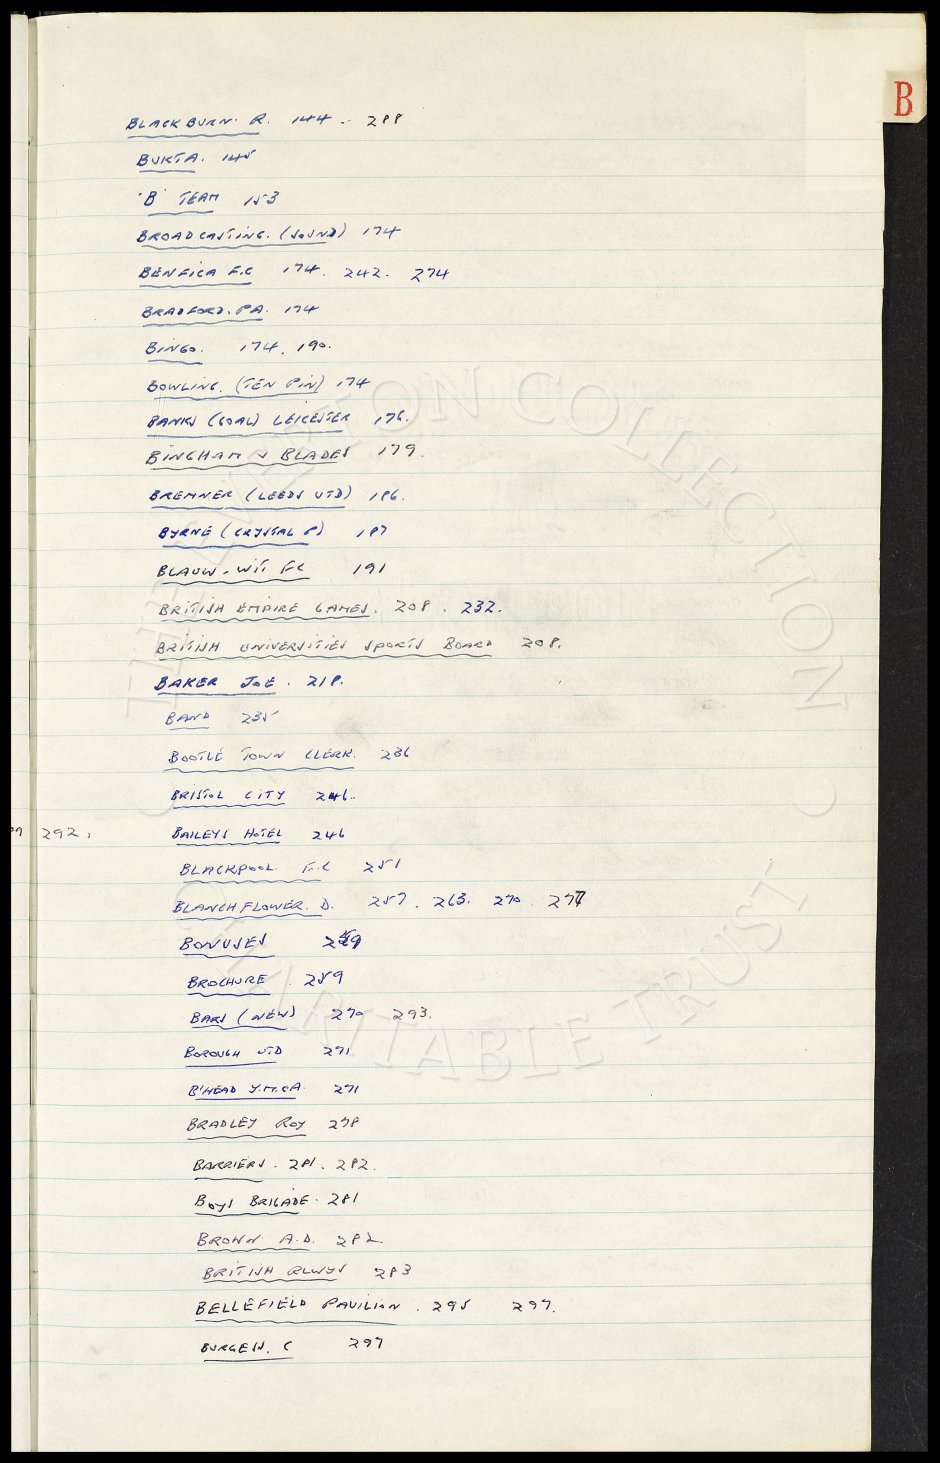 B
BLACKBURN. R. 144 - 288
BUKTA. 145
'B' TEAM 153
BROADCASTING. (SOUND) 174
BENFICA F.C 174. 242. 274
BRADFORD. PA. 174
BINGO. 174. 190.
BOWLING. (TEN PIN) 174
BANKS (GOAL) LEICESTER 176.
BINGHAM v BLADES 179.
BREMNER (LEEDS UTD) 186.
BYRNE (CRYSTAL P) 187
BLAUW. WIT FC 191
BRITISH EMPIRE GAMES. 208. 232.
BRITISH UNIVERSITIES SPORTS BOARD 208.
BAKER JOE. 218.
BAND 235
BOOTLE TOWN CLERK. 236
BRISTOL CITY 246.
292. BAILEYS HOTEL 246
BLACKPOOL F.C 251
BLANCHFLOWER. D. 257. 263. 270. 277
BONUSES 259
BROCHURE. 259
BARS (NEW) 270 293.
BOROUGH UTD 271
B'HEAD Y.M.C.A. 271
BRADLEY ROY 278
BARRIERS. 281. 282.
BOYS BRIGADE. 281
BROWN A.D. 282
BRITISH RLWYS 283
BELLEFIELD PAVILION. 295 297.
BURGESS. C 297
THE EVERTON COLLECTION
CHARITABLE TRUST